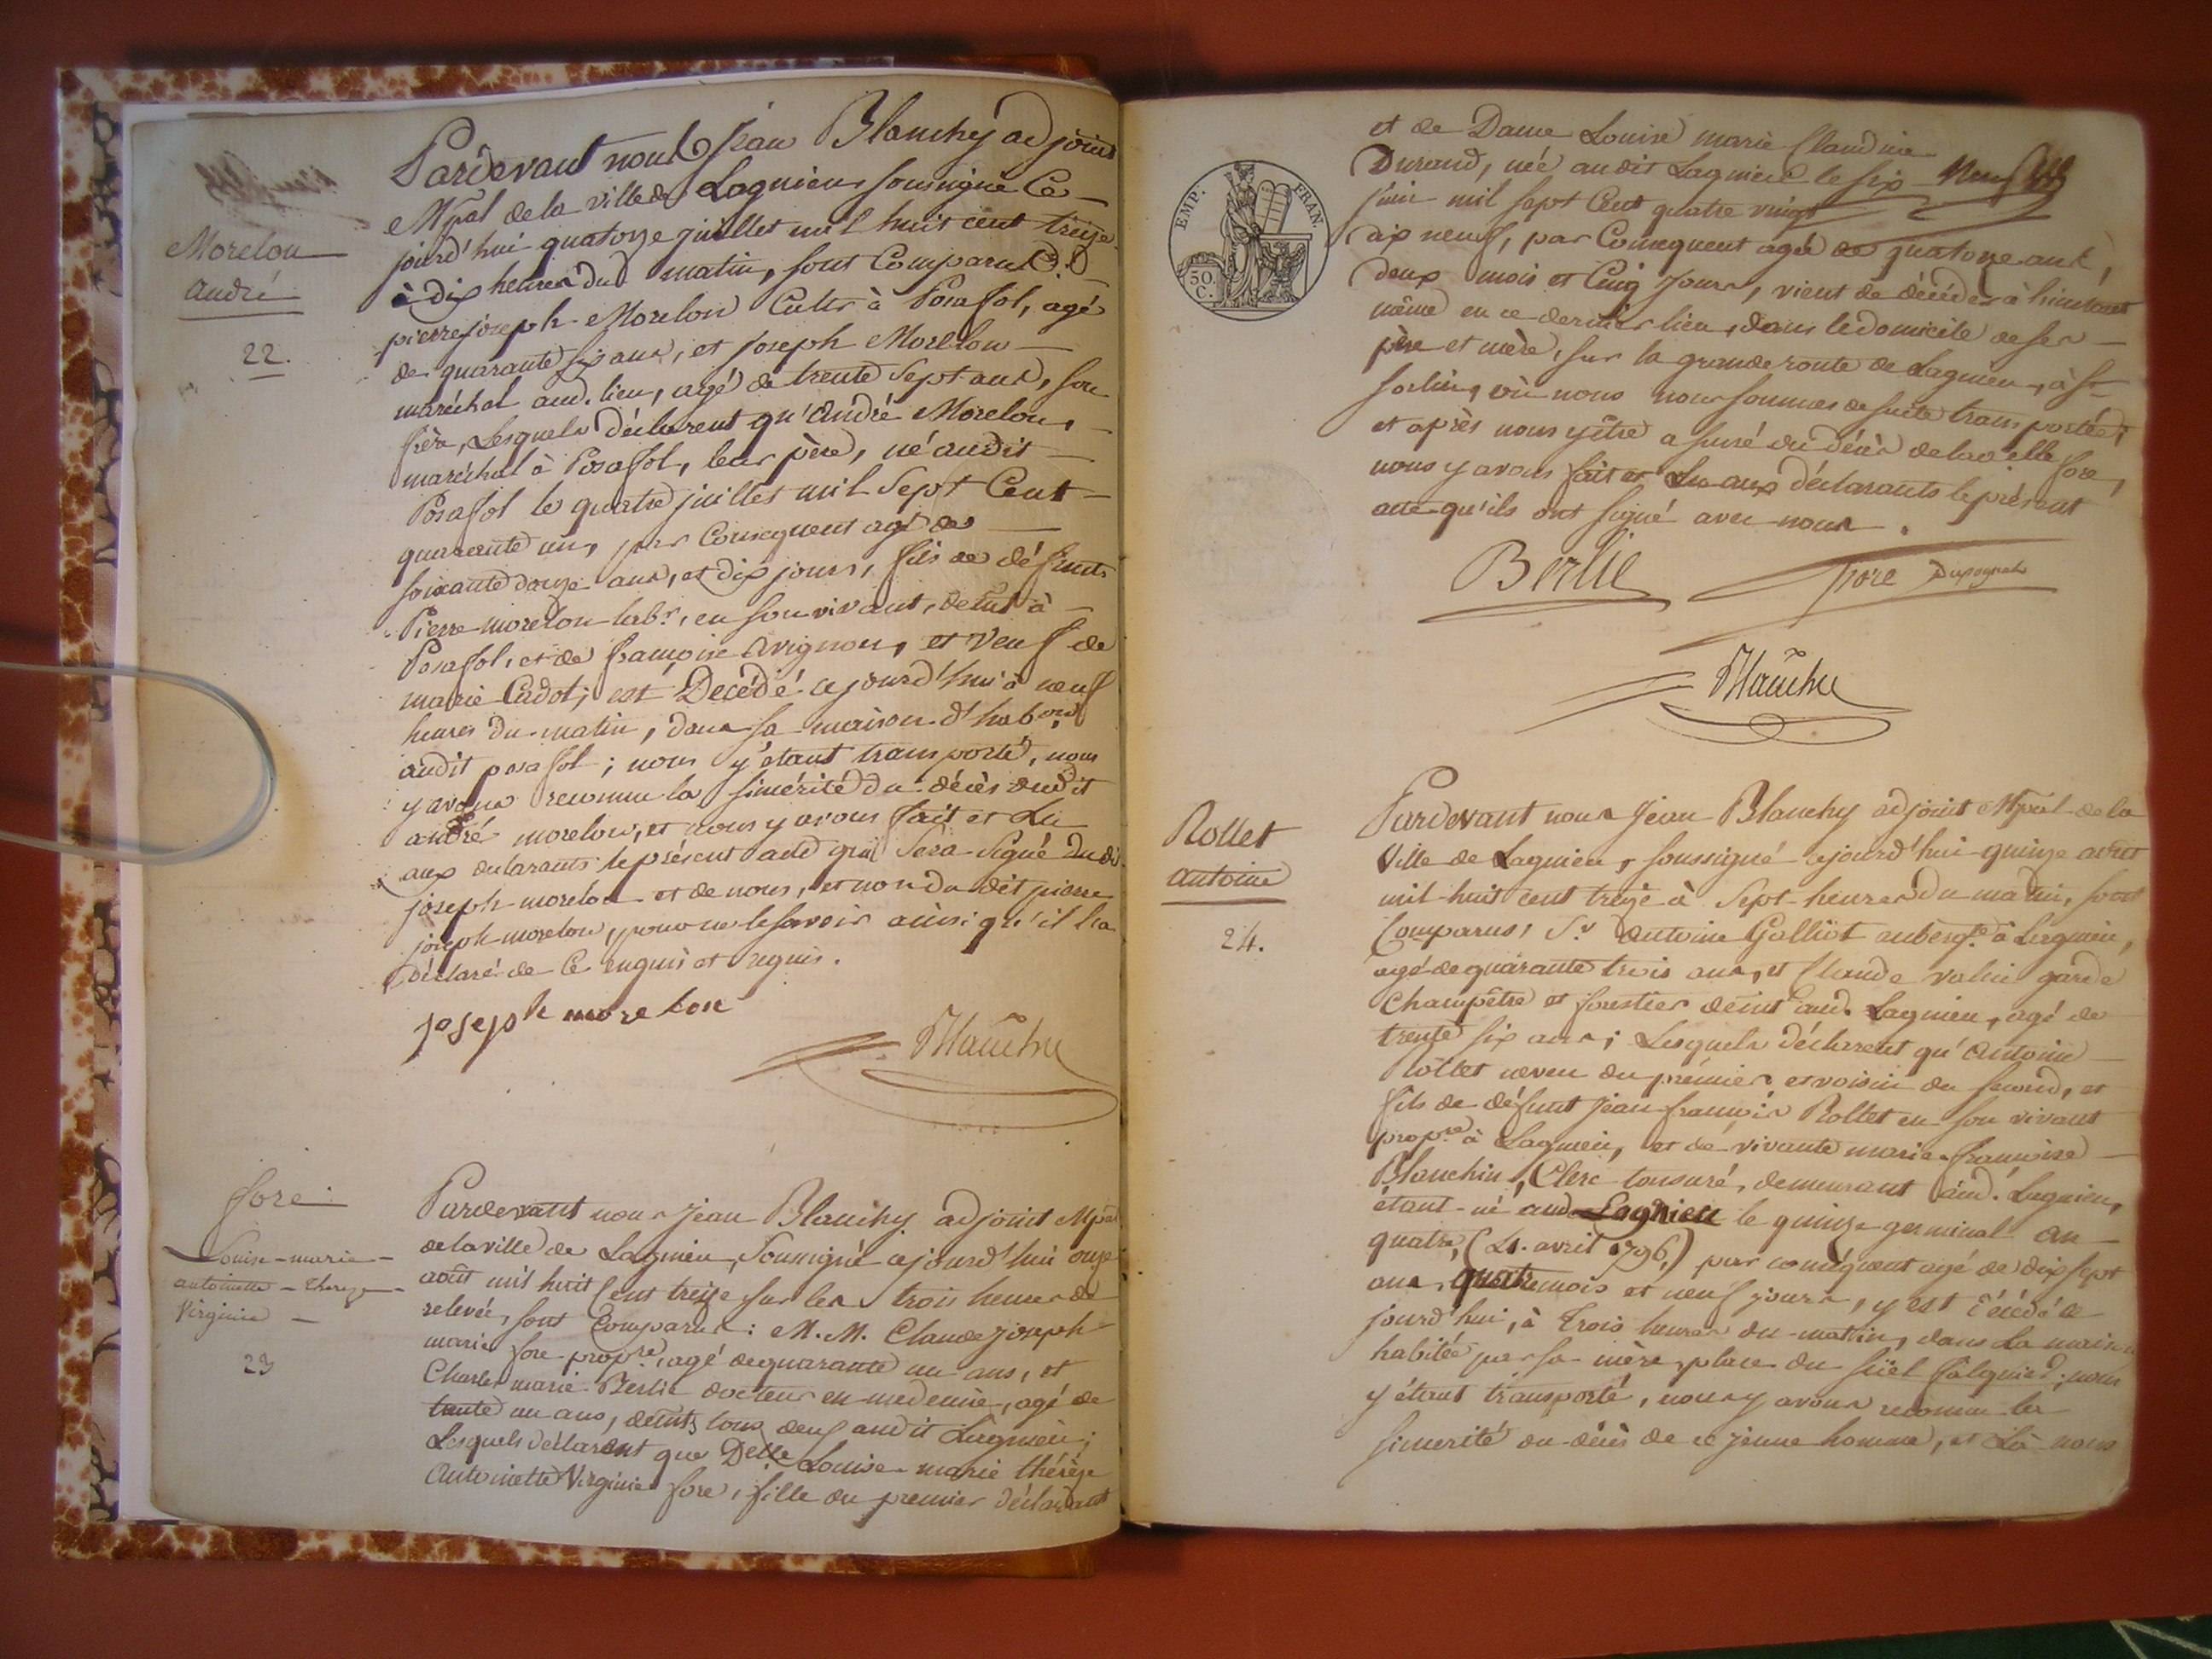 Morelon
André
22.
Pardevant nous Jean Blanchy adjoint
Mpal de la ville de Lagnieu soussigné Ce
jourd'hui quatorze juillet mil huit cent treize
à dix heures du matin, sont Comparus:
pierre joseph Morelon Cultr à Posafol, agé
de quarante six ans, et joseph Morelon
maréchal aud. lieu, agé de trente Sept ans, son
frère, Lesquels déclarent qu'André Morelon,
maréchal à Posafol, leur père, né audit
Posafol le quatre juillet mil Sept Cent
quarante un, par Consequent agé de
soixante douze ans, et dix jours, fils de défunts
Pierre morelon labr. en son vivant, demt à
Posafol, et de françoise Avignon, et Veuf de
marie Cadot; est Decédé cejourd'hui à neuf
heures du matin, dans sa maison d'habon
audit posafol; nous y étant transporté, nous
y avons reconnu la sincérité du décès dudit
andré morelon, et nous y avons fait et Lu
aux declarants le présent acte qui Sera Signé dudit
joseph morelon et de nous, et non du dit pierre
joseph morelon, pour ne le savoir ainsi qu'il l'a
déclaré de Ce enquis et requis.
joseph morelon
Blanchy
fore
Louise-marie
antoinette-thereze
Virginie
23
Pardevant nous Jean Blanchy adjoint Mpal
de la ville de Lagnieu, Soussigné cejourd'hui onze
août mil huit Cent treize sur les trois heures de
relevée, sont Comparus: M.M. Claude Joseph
marie fore propre, agé de quarante un ans, et
Charles marie Berlie docteur en medecine, agé de
trente un ans, demts tous deux audit Lagnieu;
Lesquels déclarent que Delle Louise marie thérèze
Antoinette Virginie fore, fille du premier déclarant
EMP. FRAN.
50 C.
et de Dame Louise marie Claudine
Durand, née audit Lagnieu le six
juin mil sept Cent quatre vingt
dix neuf, par Consequent agée de quatorze ans,
deux mois et Cinq jours, vient de décéder à l'instant
même en ce dernier lieu, dans le domicile de ses
père et mère, sur la grande route de Lagnieu, à St
Sorlin, où nous nous sommes de suite transporté;
et après nous y être assuré du décès de lad elle fore,
nous y avons fait et Lu aux déclarants le présent
acte qu'ils ont signé avec nous.
Berlie
fore
Blanchy
Rollet
antoine
24.
Pardevant nous Jean Blanchy adjoint Mpal de la
Ville de Lagnieu, soussigné cejourd'hui quinze août
mil huit cent treize à Sept heures du matin, sont
Comparus, Sr Antoine Galliot aubergte à Lagnieu,
agé de quarante trois ans, et Claude vallin garde
Champêtre et forestier demt aud. Lagnieu, agé de
trente six ans; Lesquels déclarent qu'Antoine
Rollet neveu du premier et voisin du second, et
fils de défunt Jean françois Rollet en son vivant
propre à Lagnieu, et de vivante marie françoise
Blanchin, Clerc tonsuré, demeurant aud. Lagnieu,
étant né aud Lagnieu le quinze germinal an
quatre, (4. avril 1796,) par conséquent agé de dix sept
ans, quatre mois et neuf jours, y est décédé ce
jourd'hui, à trois heures du matin, dans la maison
habitée par sa mère, place du nous
y étant transporté, nous y avons reconnu la
sincerité du décès de ce jeune homme, et là nous